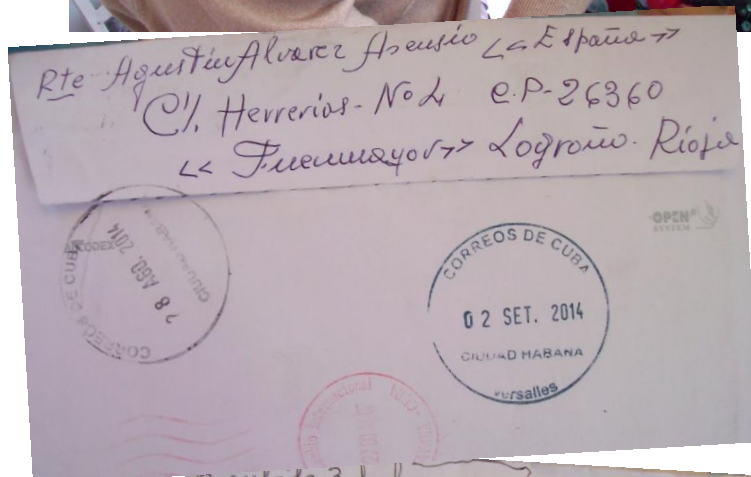 Rte Agustín Alvarez Asensio << España >>
C/. Herrerias - No 4 C.P-26360
<< Fuenmayor >> Logroño. Rioja
OPEN
SYSTEM
CORREOS DE CUBA
28 AGO. 2014
CORREOS DE CUBA
02 SET. 2014
CIUDAD HABANA
Versalles